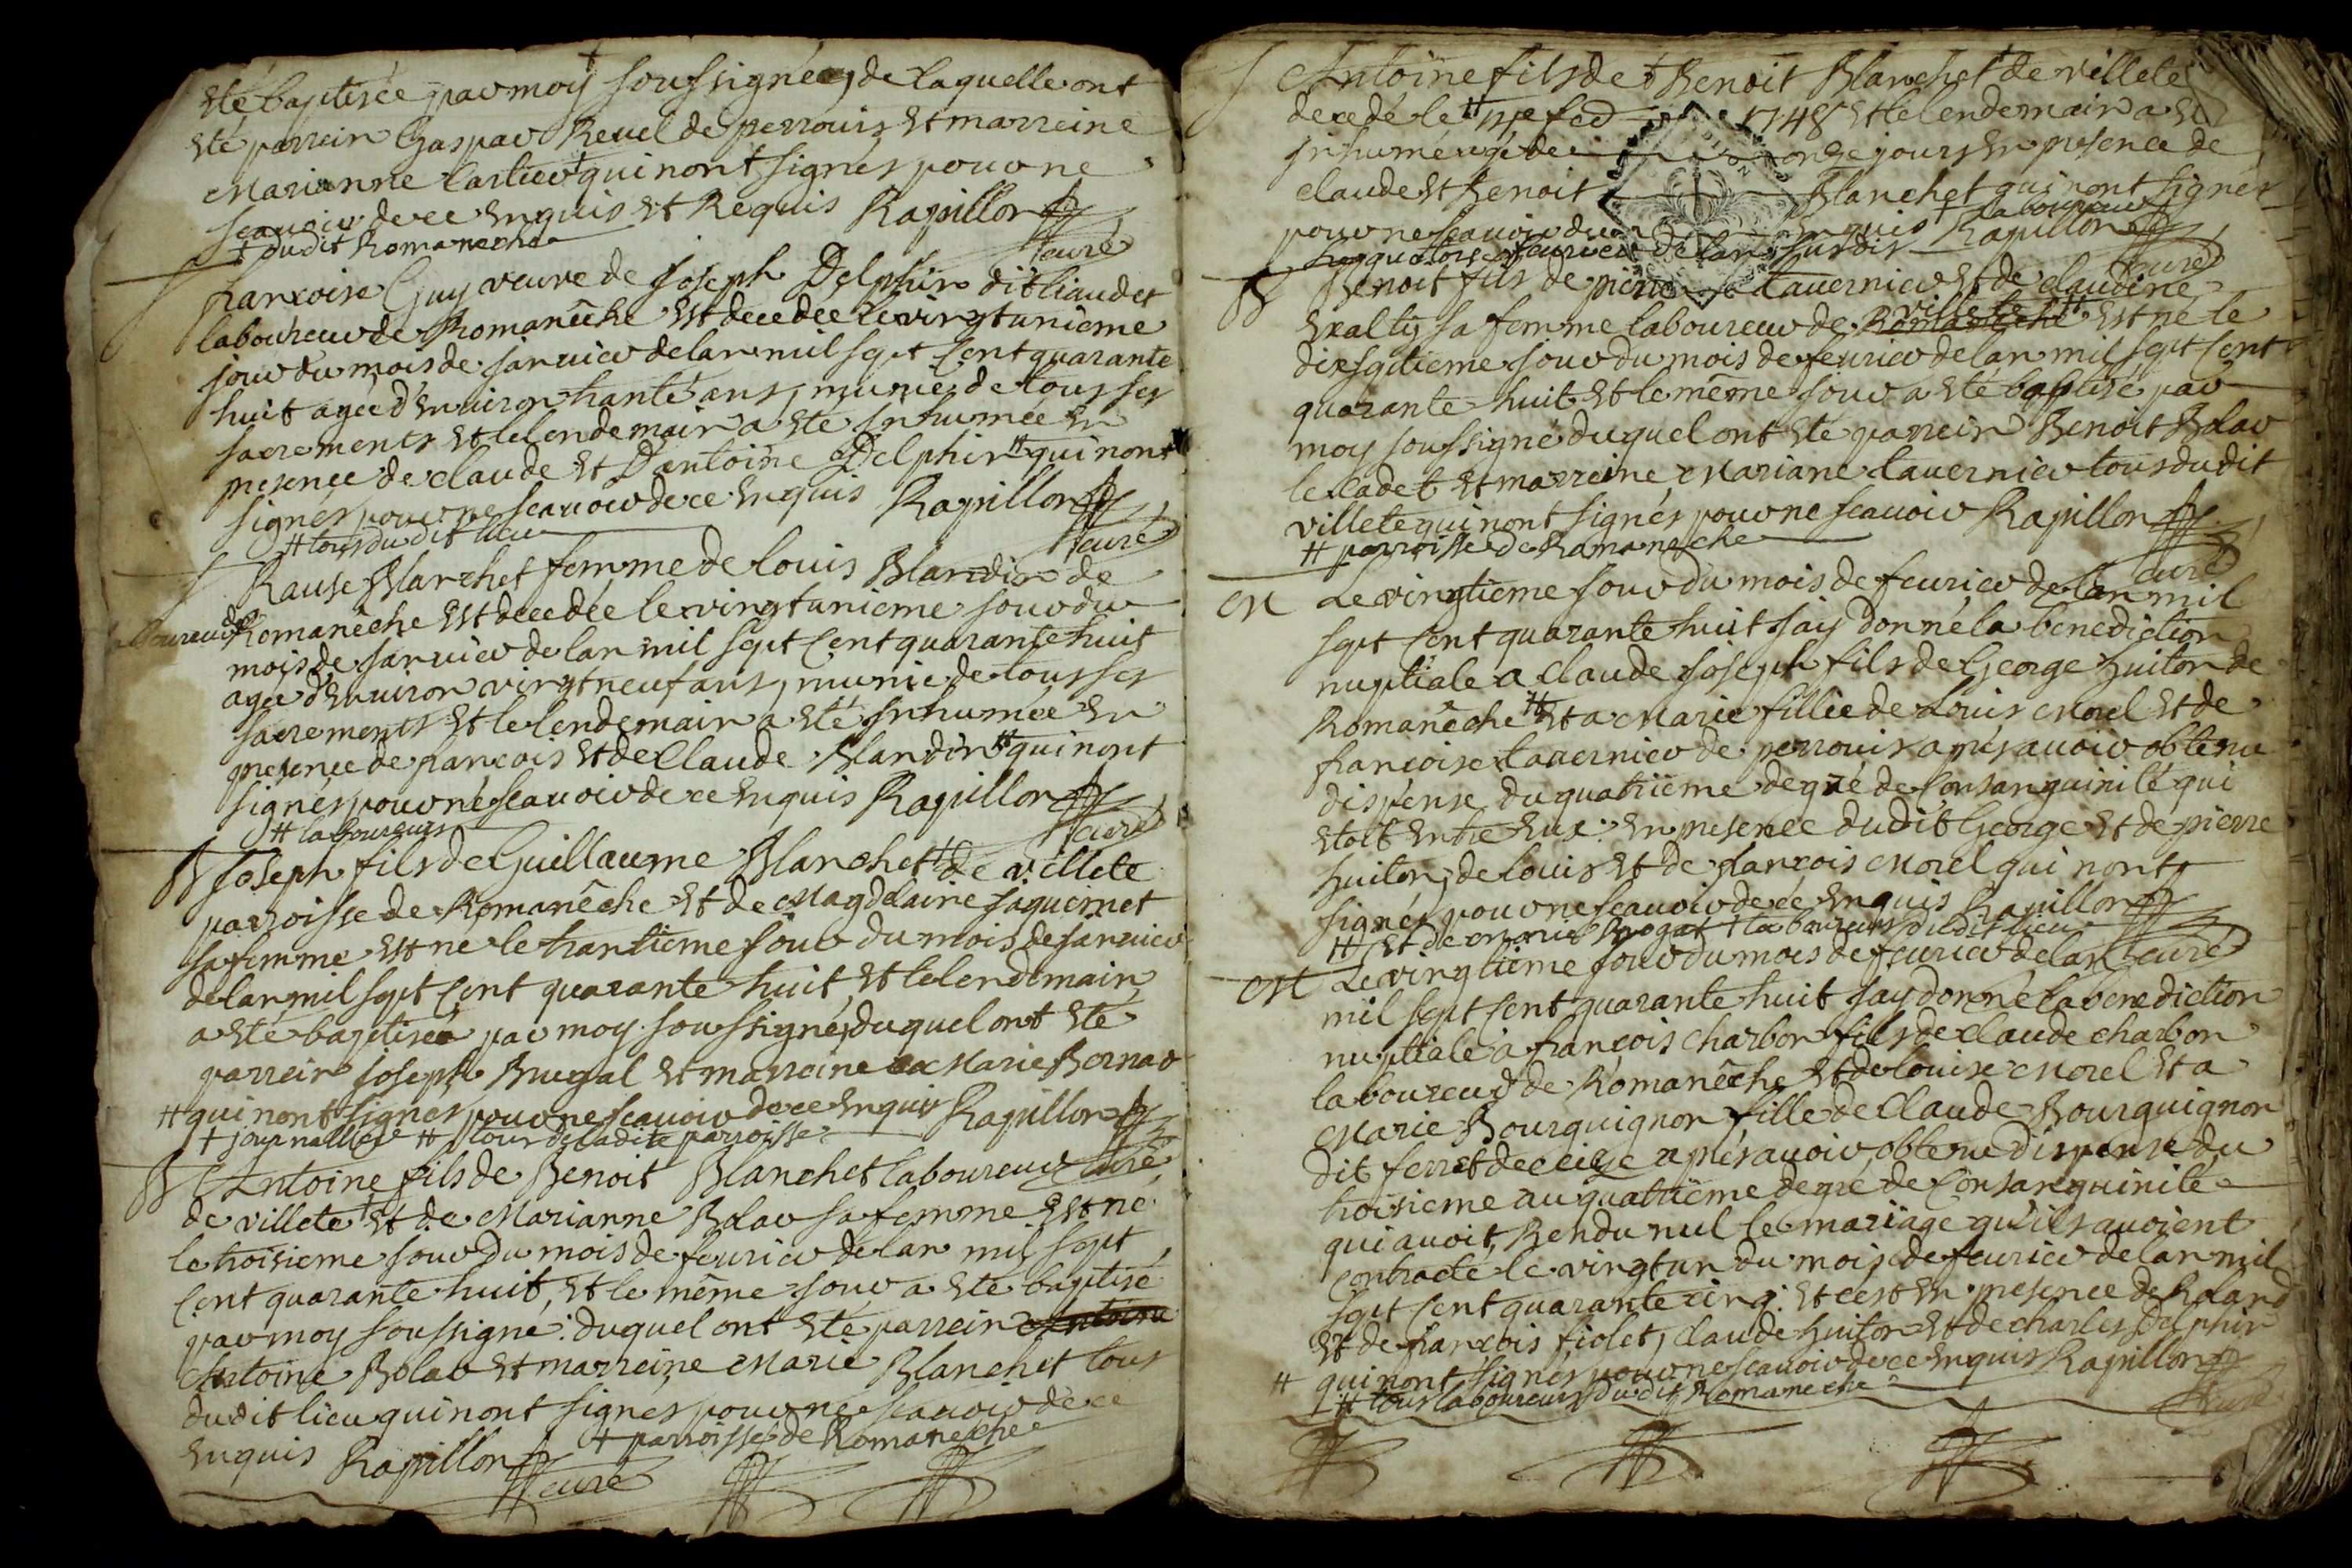 esté baptisée par moy soussigné, de laquelle ont
esté parrein Gaspar Revel de perrouis et marreine
Marianne qui nont signés pour ne
scauoir de ce enquis et Requis Rapillon
+ dudit Romaneche curé
francoise Guy veuve de joseph Delphin dit liaudet
laboureur de Romanêche est decedée le vingtunieme
jour du mois de januier de lan mil sept Cent quarante
huit agée d'enuiron trante ans, munie de tous ses
sacrements et le lendemain a esté Inhumée en
presence de claude et Dantoine Delphin # qui nont
signés pour ne scauoir de ce enquis Rapillon
# tous du dit lieu curé
Rause Blanchet femme de louis Blandin de
Romanêche est decedée le vingtunieme jour du
mois de januier de lan mil sept Cent quarante huit
agée d'enuiron vingt neuf ans, munie de tous ses
sacrements et le lendemain a esté Inhumée en
presence de francois et de Claude Blandin # qui nont
signés pour ne scauoir de ce enquis Rapillon
# laboureurs curé
B Joseph fils de Guillaume Blanchet + de villete
parroisse de Romanêche et de Magdelaine jaquemet
sa femme est né le trantieme jour du mois de januier
de lan mil sept Cent quarante huit, et le lendemain
a esté baptisé par moy soussigné, duquel ont esté
parrein joseph Brugal et marreine Marie Bernar
# qui nont signés pour ne scauoir de ce enquis Rapillon
+ journallier # tous de ladite parroisse
B Antoine fils de Benoit Blanchet laboureur curé
de villete + et de Marianne Bolar sa femme est né
le troisieme jour du mois de feurier de lan mil sept
Cent quarante huit, et le même jour a esté baptisé
par moy soussigné: duquel ont esté parrein Antoine
Antoine Bolar et marreine Marie Blanchet tous
dudit lieu qui nont signés pour ne scauoir de ce
enquis Rapillon + parroisse de Romaneche
curé
Antoine fils de + Benoit Blanchet de villete
decedé le # 1748 et le lendemain a
Inhumé agé de onze jours en presence de
claude et Benoit Blanchet qui nont signés
pour ne scauoir enquis + laboureur Rapillon
# quatorze feurier de lan susdit curé
B Benoit fils de pierre tauernier et de claudine
sa femme laboureur de Romaneche villete # est né le
dixseptieme jour du mois de feurier de lan mil sept cent
quarante huit et le même jour a esté baptisé par
moy soussigné duquel ont esté parrein Benoit Bolar
le cadet et marreine Mariane tauernier tous dudit
villete qui nont signés pour ne scauoir Rapillon
# parroisse de Romaneche curé
M Le vingtieme jour du mois de feurier de lan mil
sept Cent quarante huit jay donné la benediction
nuptiale a Claude joseph fils de George huiton de
Romanêche # et a Marie fillie de Louis Morel et de
francoise tauernier de perrouis apres auoir obtenu
dispense du quatrieme degré de Consanguinité qui
estoit entre eux: en presence dudit George et de pierre
huiton, de louis et de francois Morel qui nont
signés pour ne scauoir de ce enquis Rapillon
# et de + laboureurs dudit lieu
M Le vingtieme jour du mois de feurier de lan curé
mil sept Cent quarante huit jay donné la benediction
nuptiale a francois charbon fils de claude charbon
laboureur de Romanêche et de louise Morel et a
Marie Bourguignon fille de Claude Bourguignon
dit ferret de apres auoir obtenu dispense du
troisieme au quatrieme degré de Consanguinité
qui auoit Rendu nul le mariage qu'ils auoient
Contracté le vingtun du mois de feurier de lan mil
sept Cent quarante cinq: et cest en presence de
et de francois fiolet, claude huiton et de charles Delphin
# qui nont signés pour ne scauoir de ce enquis Rapillon
# tous laboureurs dudit Romaneche curé